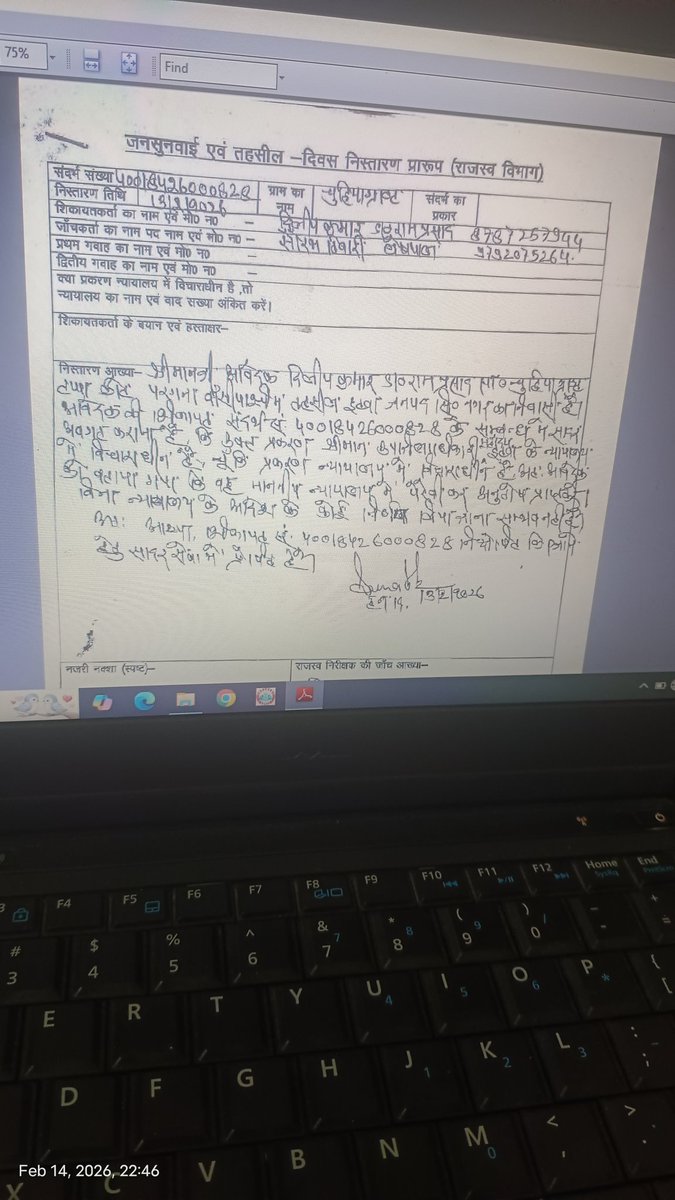 75%
Find
जनसुनवाई एवं तहसील –दिवस निस्तारण प्रारूप (राजस्व विभाग)
संदर्भ संख्या 40018426000828
निस्तारण तिथि 13/2/2026 ग्राम का नाम संदर्भ का प्रकार
शिकायतकर्ता का नाम एवं मो0 न0 – दिलीप कुमार S/o राम प्रसाद 8787257944
जाँचकर्ता का नाम पद नाम एवं मो0 न0 – सौरभ तिवारी लेखपाल 9792075264
प्रथम गवाह का नाम एवं मो0 न0 –
द्वितीय गवाह का नाम एवं मो0 न0 –
क्या प्रकरण न्यायालय में विचाराधीन है ,तो
न्यायालय का नाम एवं वाद सख्या अंकित करें।
शिकायतकर्ता के बयान एवं हस्ताक्षर–
निस्तारण आख्या– श्रीमानजी आवेदक दिलीप कुमार S/o राम प्रसाद
परगना तहसील इटवा जनपद सि0 नगर का निवासी है।
आवेदक की शिकायत संदर्भ सं 40018426000828 के सम्बन्ध में सादर
अवगत कराना है कि उक्त प्रकरण श्रीमान उपजिलाधिकारी महोदय इटवा के न्यायालय
में विचाराधीन है, चूँकि प्रकरण न्यायालय में विचाराधीन है अतः आवेदक
को बताया गया कि वह माननीय न्यायालय में पैरवी कर अनुतोष प्राप्त करें।
बिना न्यायालय के आदेश के कोई किया जाना सम्भव नहीं है।
अतः आख्या, शिकायत सं. 40018426000828 निक्षेपित किये जाने
हेतु सादर सेवा में प्रेषित है।
13/2/2026
नजरी नक्शा (स्पष्ट)– राजस्व निरीक्षक की जाँच आख्या–
F4 F5 F6 F7 F8 F9 F10 F11 F12 Home End
# 3 $ 4 % 5 ^ 6 & 7 7 * 8 8 ( 9 9 ) 0 / - + =
E R T Y U 4 I 5 O 6 P * { [
D F G H J 1 K 2 L 3 : ;
X C V B N M 0 < , > .
Feb 14, 2026, 22:46